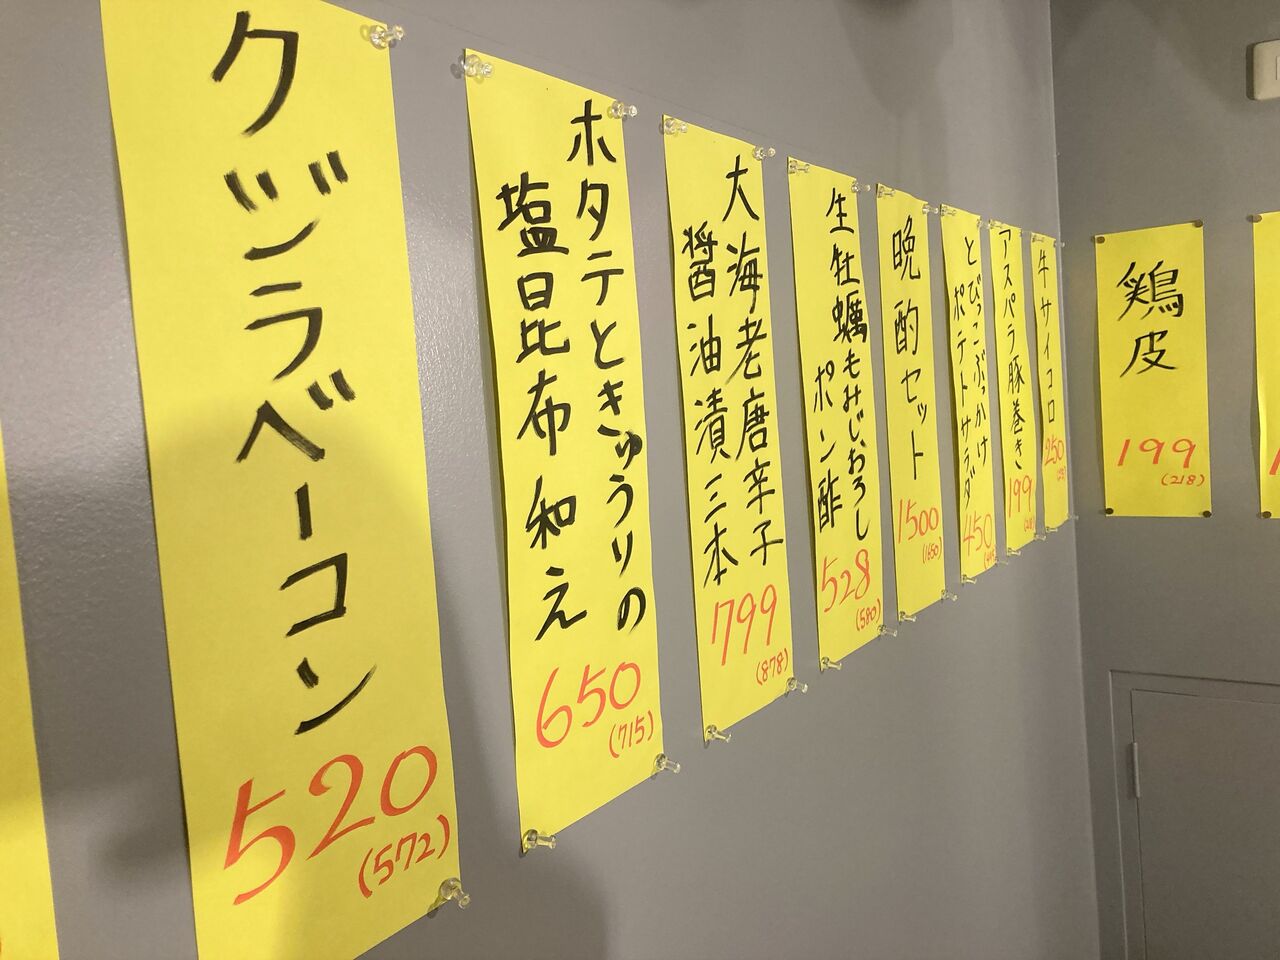 クジラベーコン
520
(572)
ホタテときゅうりの
塩昆布和え
650
(715)
大海老唐辛子
醤油漬三本
799
(878)
生牡蠣もみじおろし
ポン酢
528
(580)
晩酌セット
1500
(1650)
とびっこぶっかけ
ポテトサラダ
450
アスパラ豚巻き
199
牛サイコロ
250
鶏皮
199
(218)